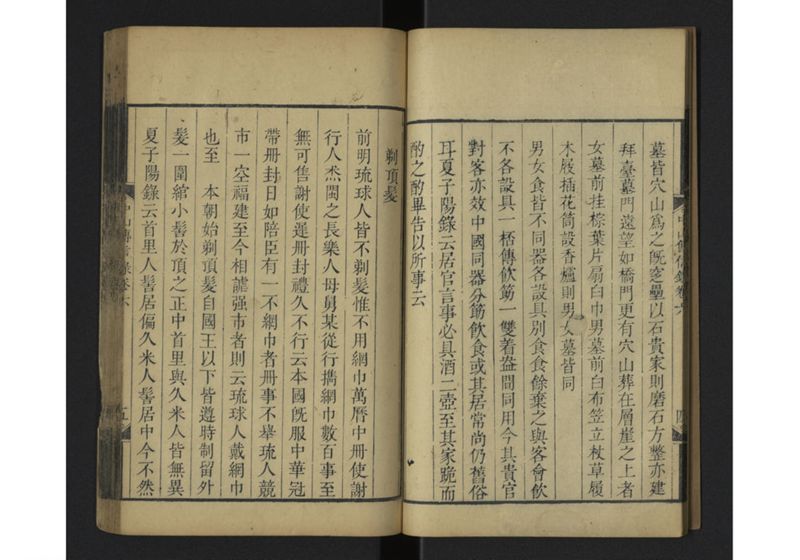 墓皆穴山爲之既窆壘以石貴家則磨石方整亦建
拜臺墓門遠望如橋門更有穴山葬在層崖之上者
女墓前挂棕葉片扇白巾男墓前白布笠立杖草履
木屐插花筒設香爐則男女墓皆同
男女食皆不同器各設具別食食餘棄之與客會飲
不各設具一桮傳飲筯一雙着盎間同用今其貴官
對客亦效中國同器分筯飲食或其居常尚仍舊俗
耳夏子陽錄云居官言事必具酒二壺至其家跪而
酌之酌畢告以所事云
中山傳信錄卷六
四
剃頂髮
前明琉球人皆不剃髮惟不用網巾萬曆中冊使謝
行人杰閩之長樂人母舅某從行攜網巾數百事至
無可售謝使遲冊封禮久不行云本國既服中華冠
帶冊封日如陪臣有一不網巾者冊事不舉琉人競
市一空福建至今相謔强市者則云琉球人戴網巾
也至 本朝始剃頂髮自國王以下皆遵時制留外
髮一圍綰小髻於頂之正中首里與久米人皆無異
夏子陽錄云首里人髻居偏久米人髻居中今不然
中山傳信錄卷六
五